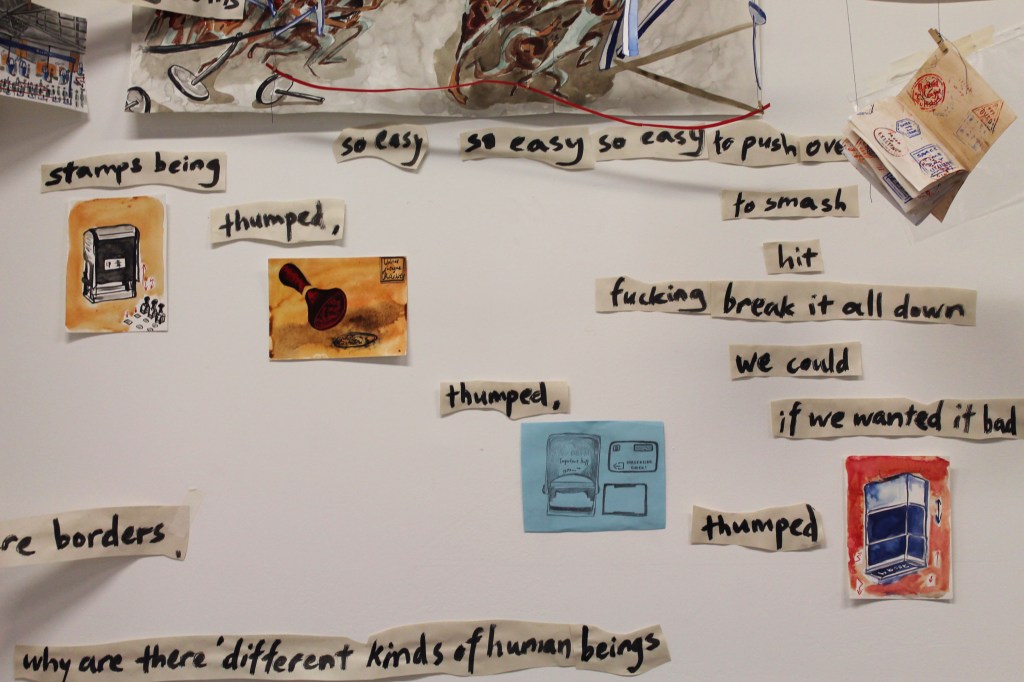 so easy so easy so easy to push ove
stamps being
to smash
thumped,
hit
fucking break it all down
we could
thumped,
if we wanted it bad
thumped
re borders,
why are there 'different kinds of human beings